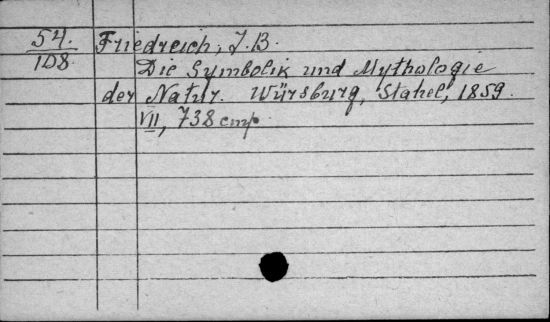 54. Friedreich, J.B.
108 Die Symbolik und Mythologie
der Natur. Würsburg, Stahel, 1859.
VII, 738 cmp.